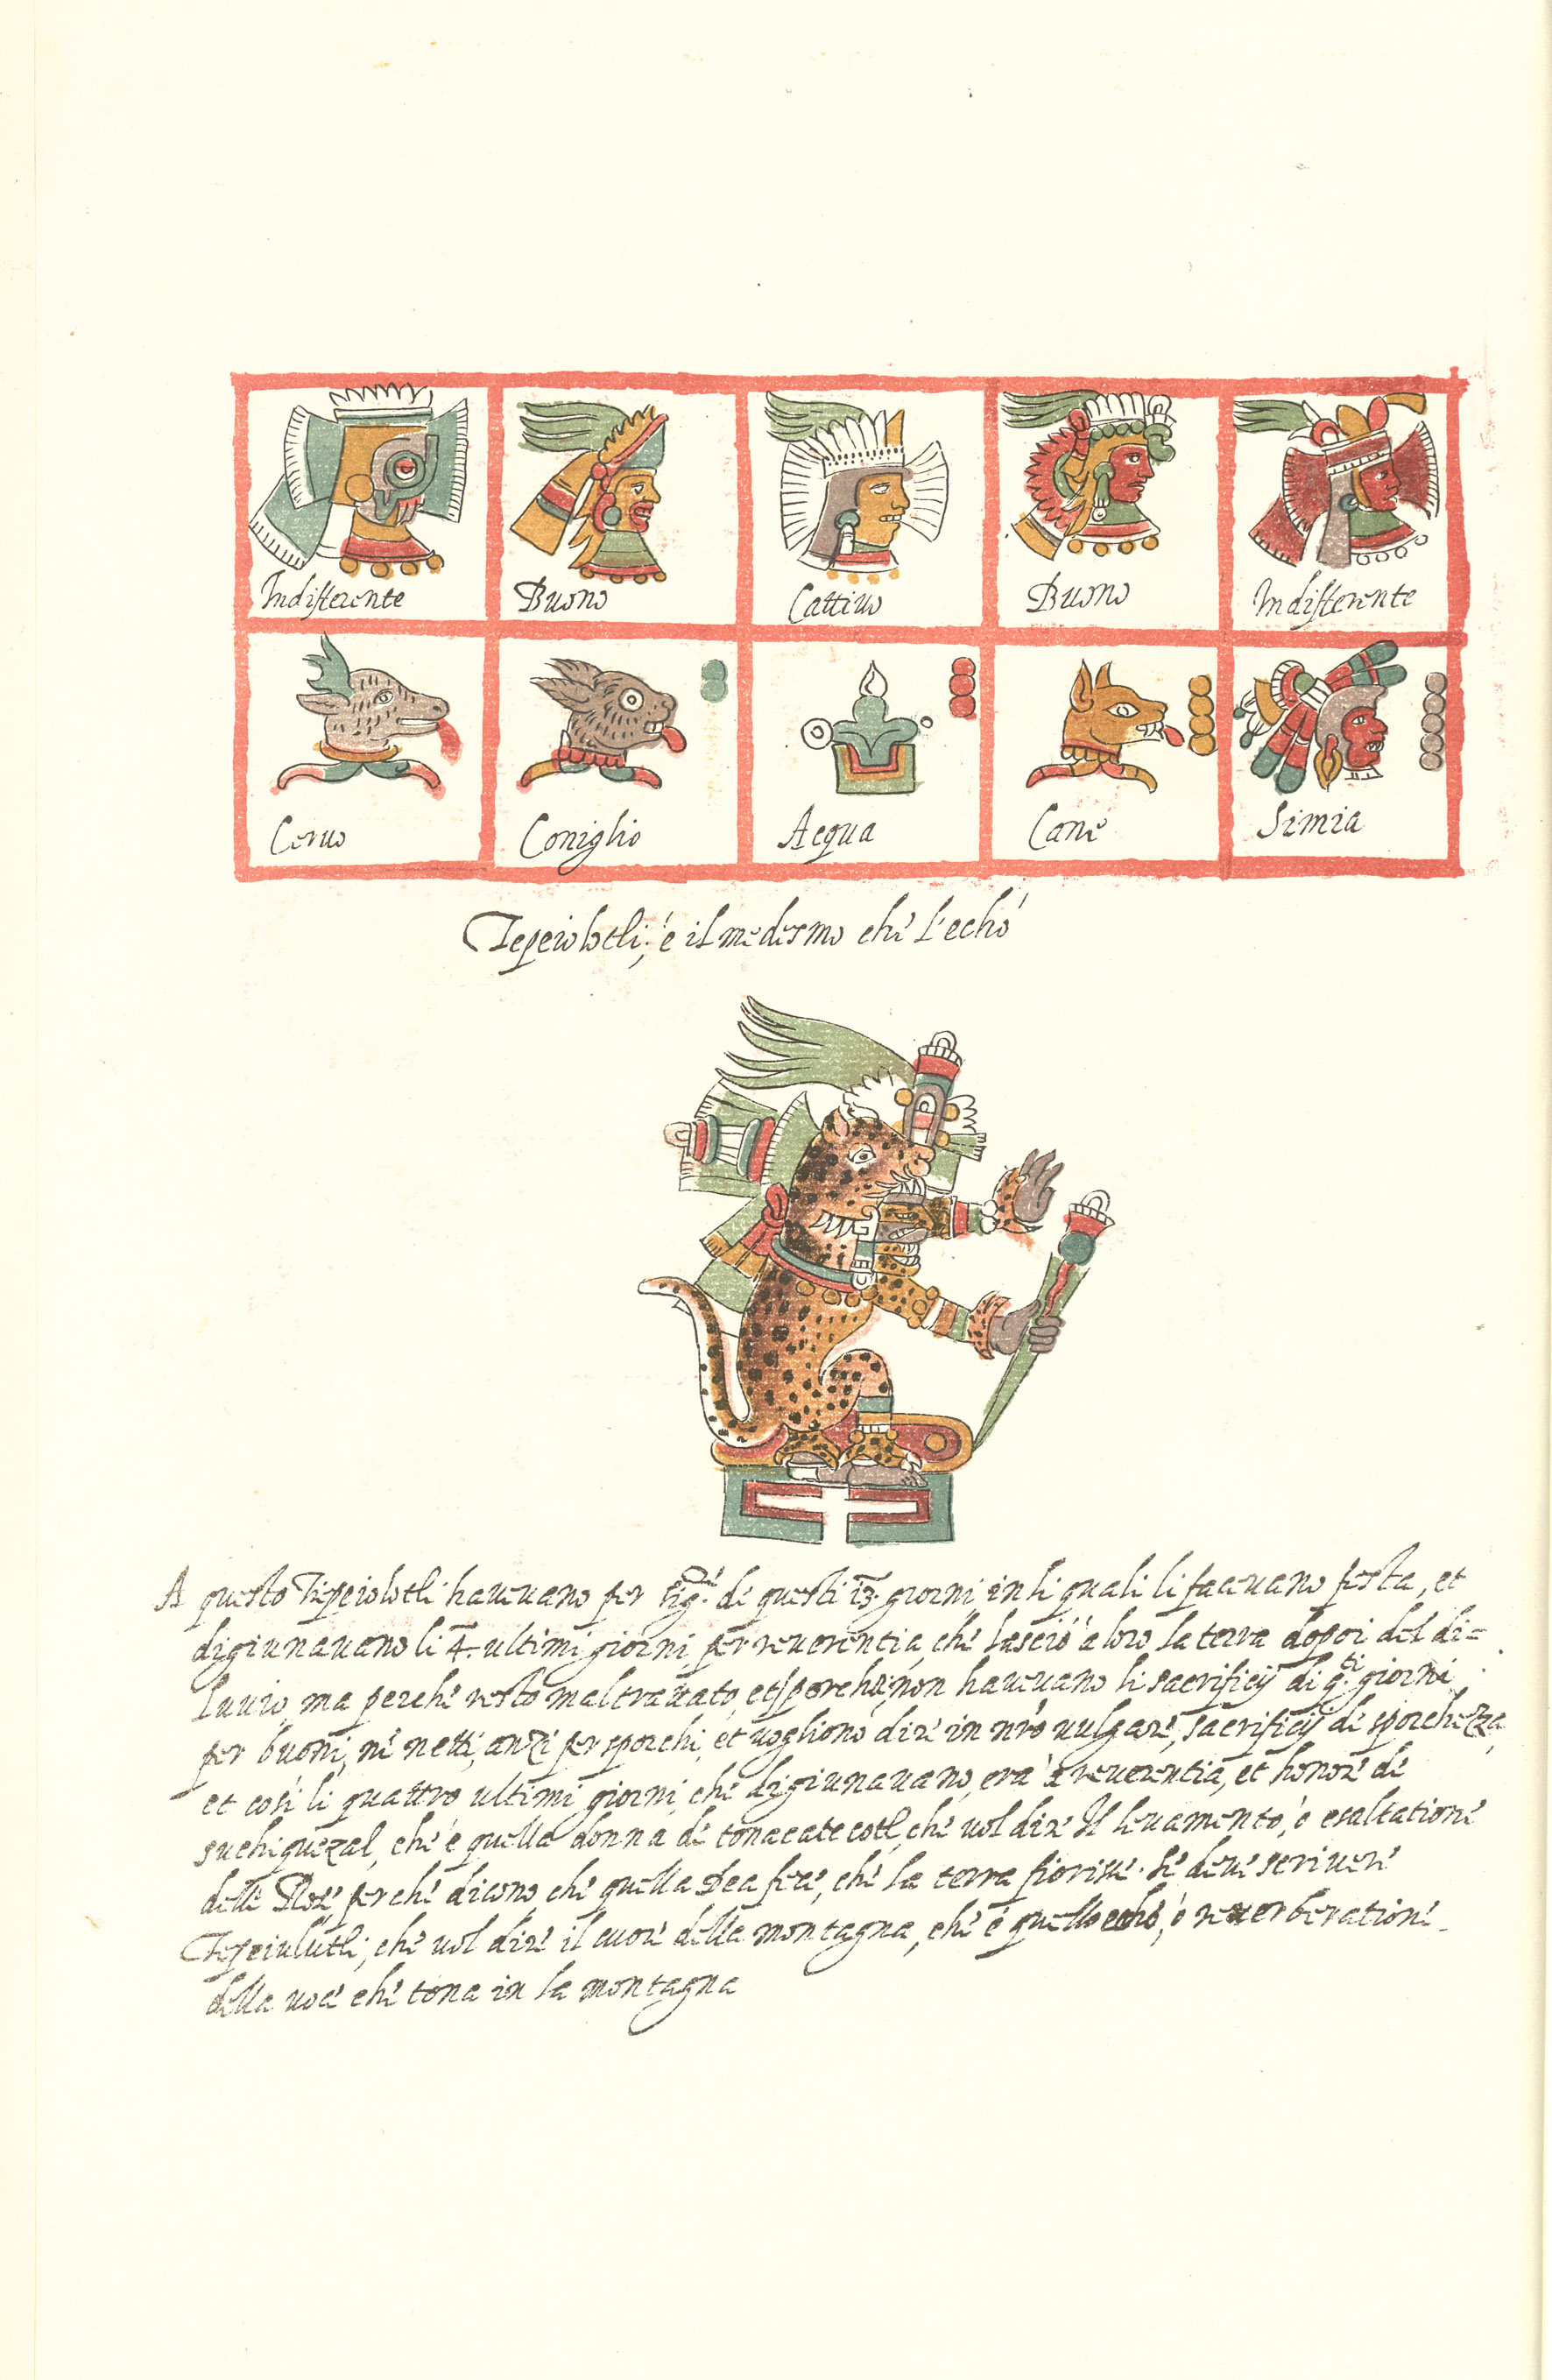 Indifferente Buono Cattiuo Buono Indifferente
Ceruo Coniglio Acqua Cane Simia
Tepeiolotli, é il medesmo che l'echo
A questo Tepeiolotli haueuano per sig.re de questi 13. giorni in li quali li faceuano festa, et
digiunauano li 4. ultimi giorni, per reuerentia, che lasció á loro la terra dopoi del di=
luuio, ma perche resto maltrattato, et sporcha, non haueuano li sacrificij di q.ti giorni
per buoni, ne netti, anzi per sporchi, et uogliono dire in nr̃o uulgare, sacrificij de sporchezza,
et cosi li quattro ultimi giorni, che digiunauano, era á reuerentia, et honore de
suchiquezal, che é quella donna de tonacatecotl, che uol dire Il leuamento, ó exaltatione
delle Rose, perche dicono, che quella Dea fece, che la terra fiorisse. Se deue scriuere
Tepeiulutli, che uol dire il cuore della montagna, che é quello echo, ó reuerberatione
della uoce che tona in la montagna